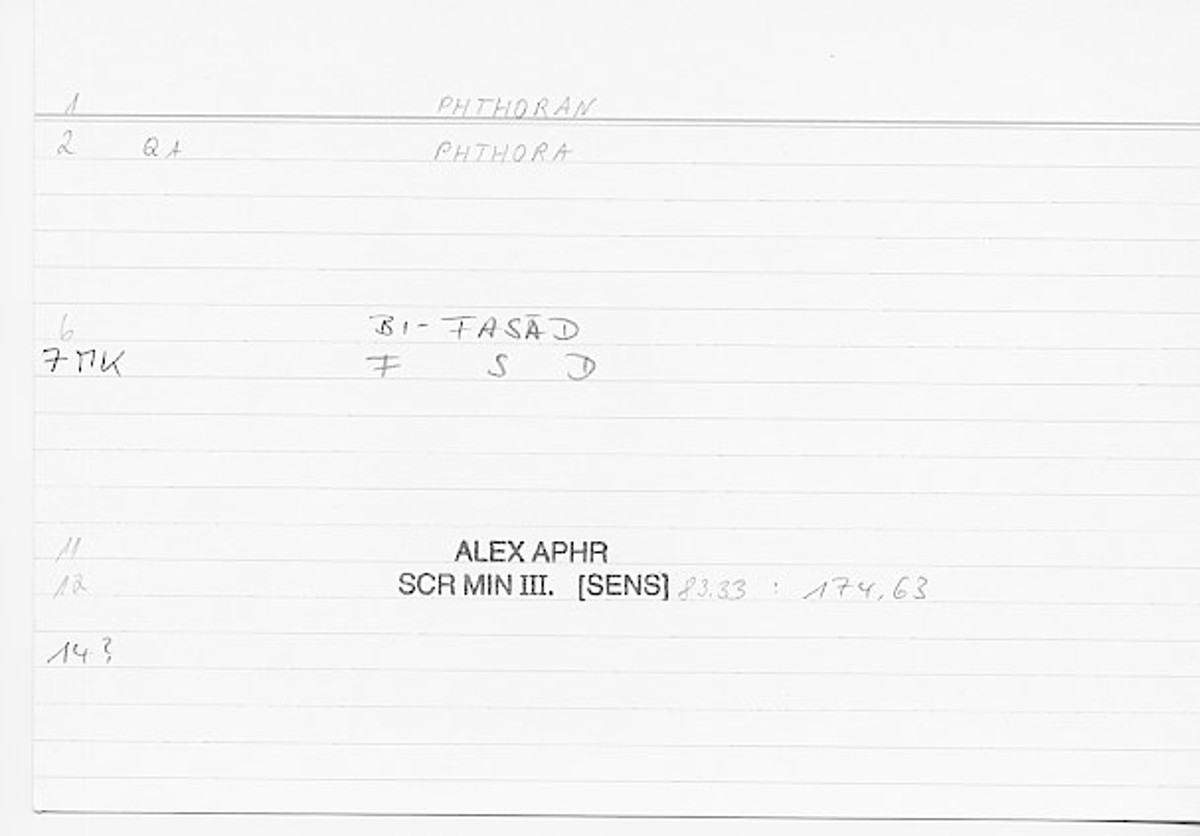 1 PHTHORAN
2 QA PHTHORA
6 BI-FASĀD
7 MK F S D
11 ALEX APHR
12 SCR MIN III. [SENS] 83.33 : 174,63
14?